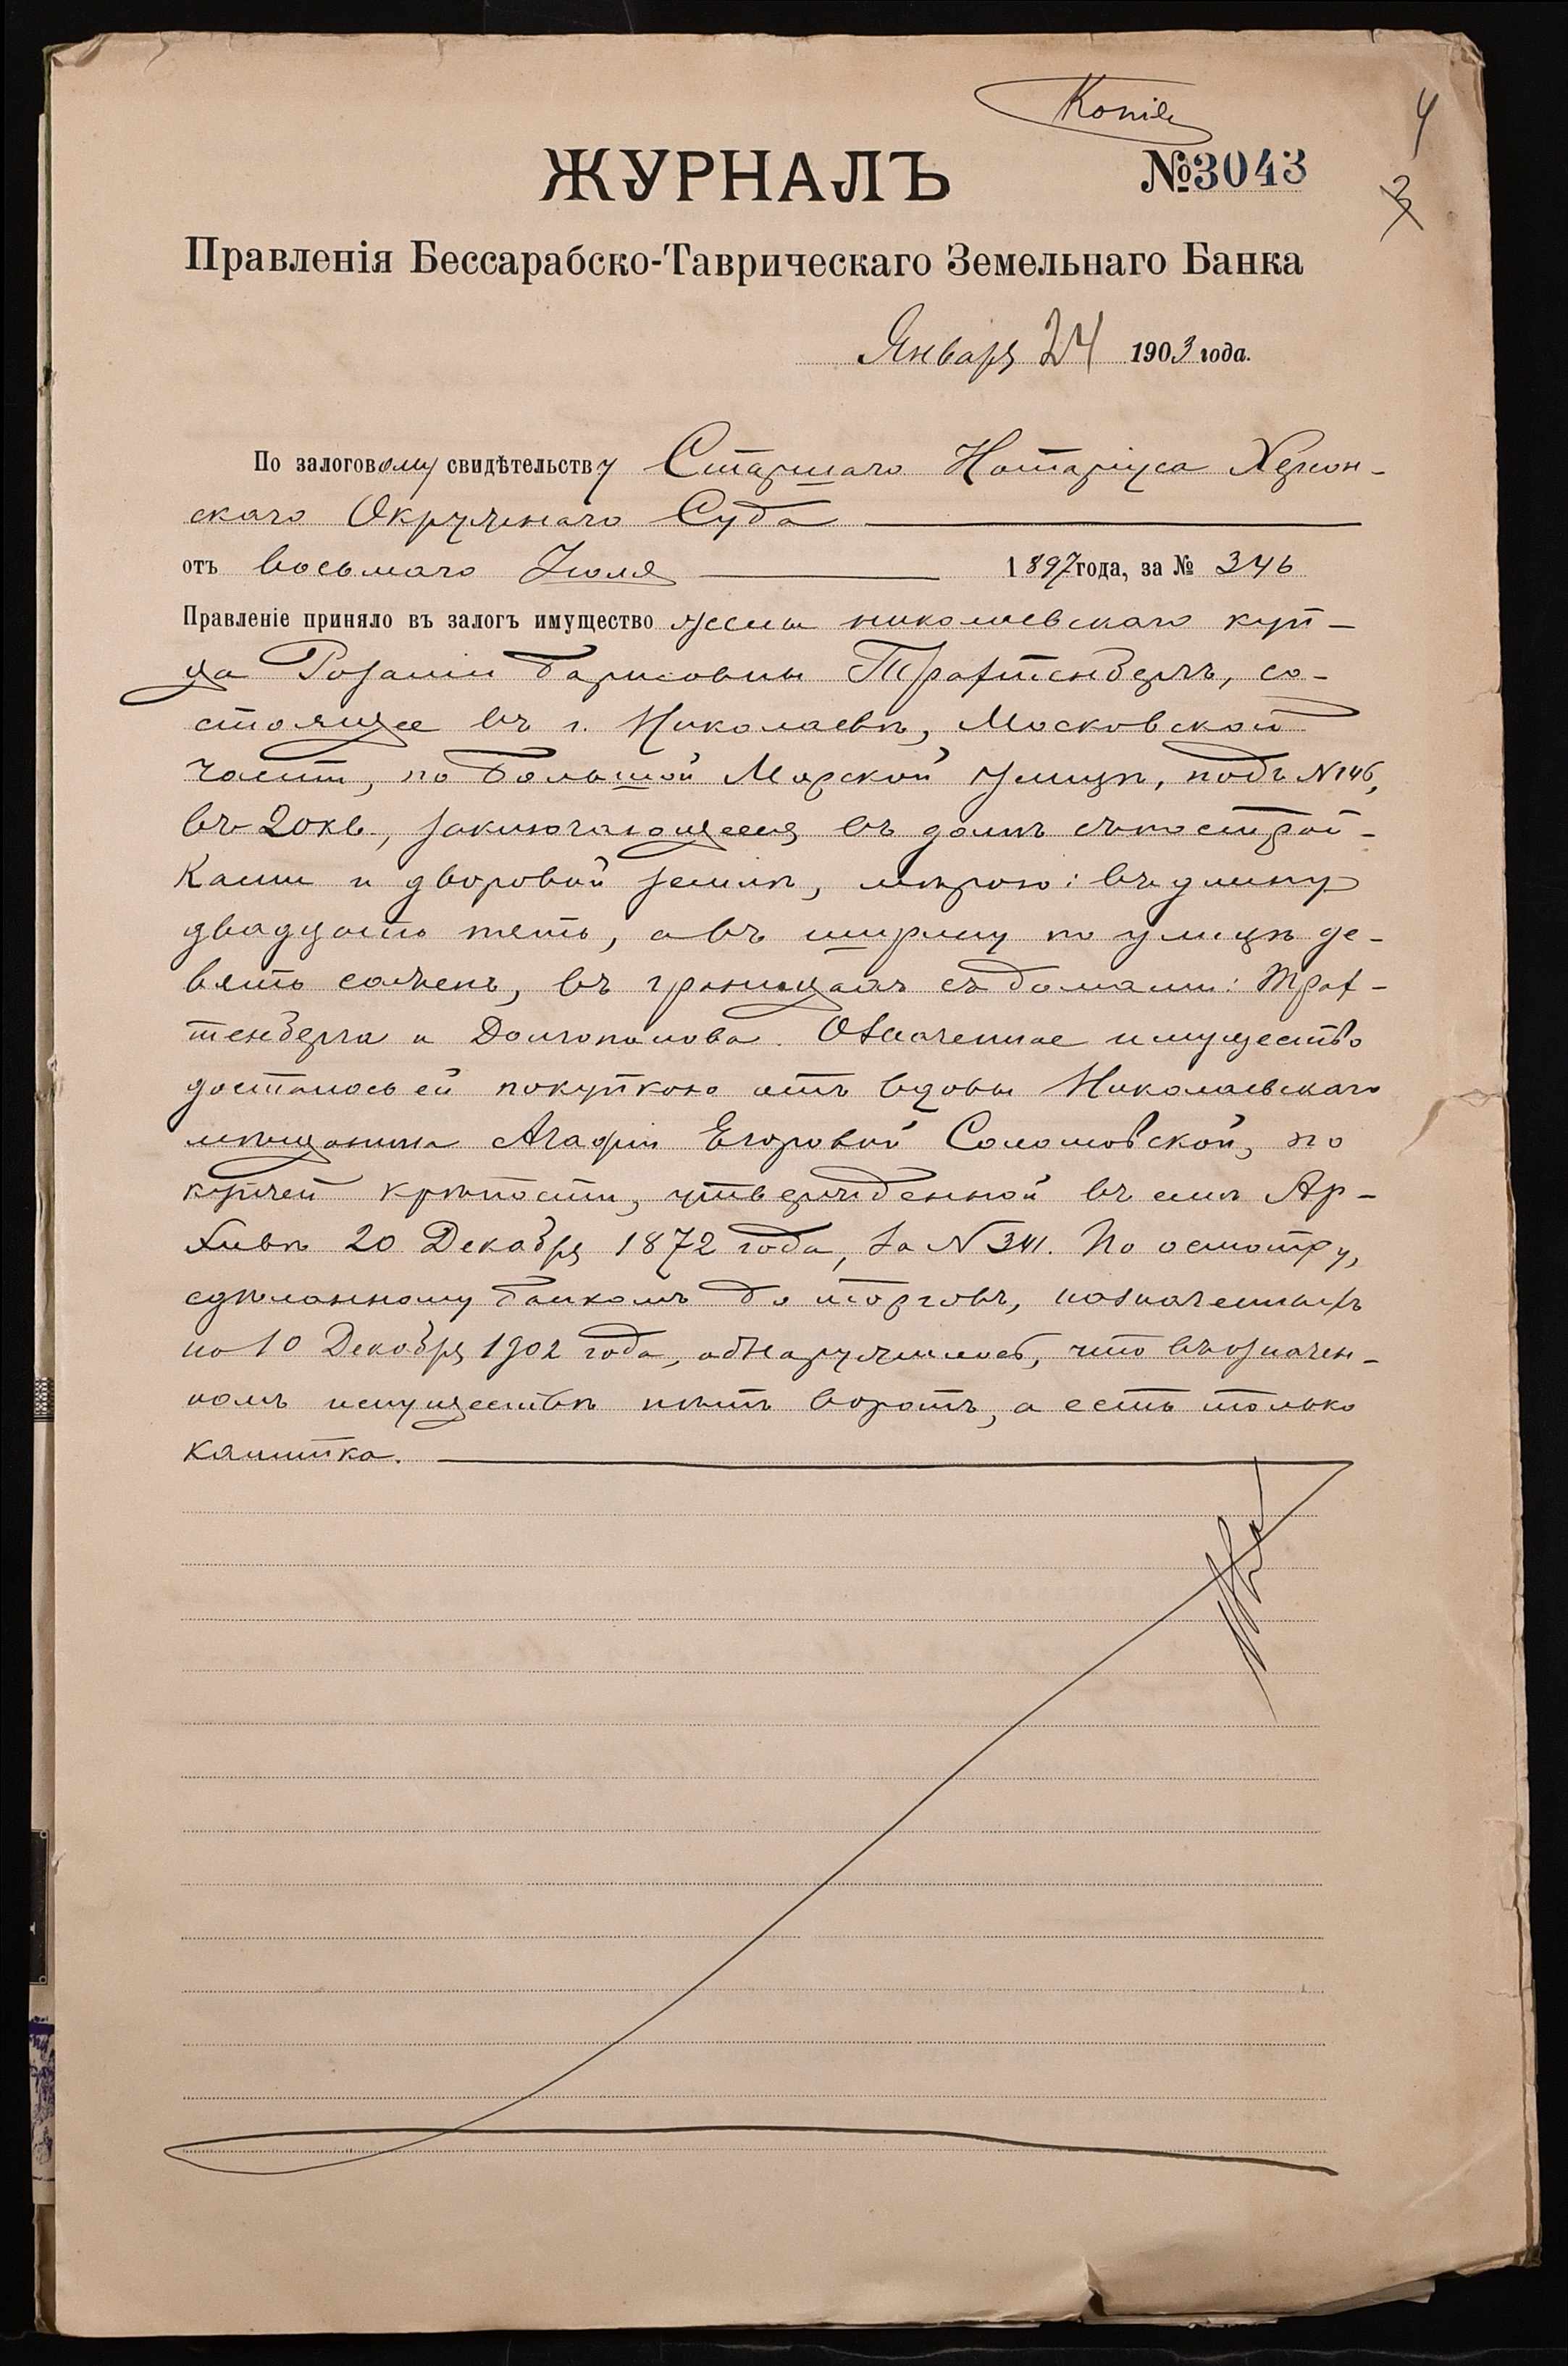 Копія
4
ЖУРНАЛЪ №3043
3
Правленія Бессарабско-Таврическаго Земельнаго Банка
Января 24 1903 года.
По залоговому свидѣтельству Старшаго Нотаріуса Херсон-
скаго Окружнаго Суда
отъ восьмаго Іюля 1897 года, за № 346
Правленіе приняло въ залогъ имущество жены николаевскаго куп-
ца Розаліи Борисовны Трахтенбергъ, со-
стоящее въ г. Николаевѣ, Московской
части, по Большой Морской улицѣ, подъ №146,
въ 20 кв., заключающееся въ домѣ съ построй-
ками и дворовой землѣ, мѣрою: въ длину
двадцать пять, а въ ширину по улицѣ де-
вять сажень, въ границахъ съ домами: Трах-
тенберга и Долгополова. Означенное имущество
досталось ей покупкою отъ вдовы Николаевскаго
мѣщанина Агафіи Егоровой Соломовской, по
купчей крѣпости, утвержденной въ семъ Ар-
хивѣ 20 Декабря 1872 года, за № 341. По осмотру,
сдѣланному банкомъ до торговъ, назначенныхъ
на 10 Декабря 1902 года, обнаружилось, что въ означен-
номъ имуществѣ нѣтъ воротъ, а есть только
калитка.